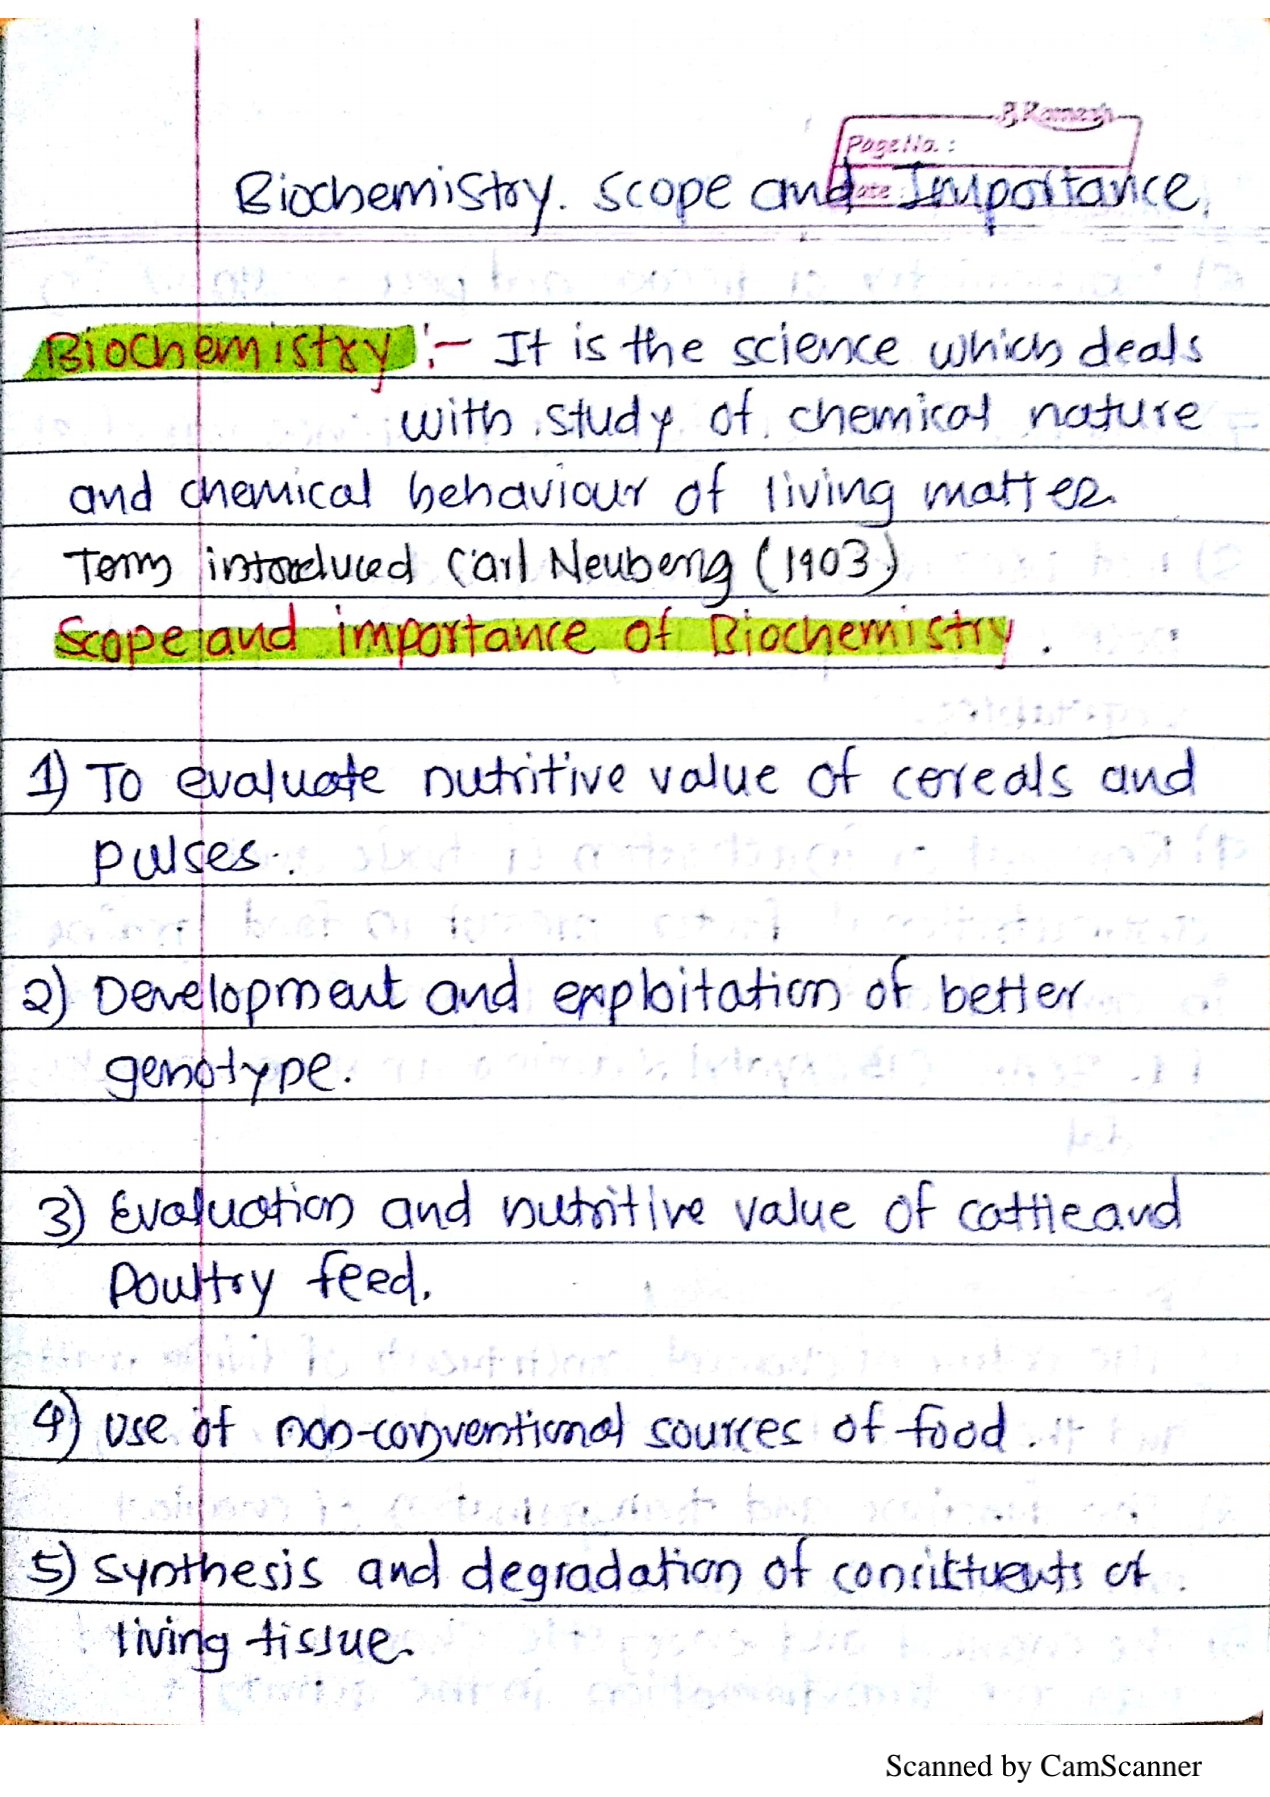 B. Ramesh
Page No. :
Date
Biochemistry. Scope and Importance.
Biochemistry :- It is the science which deals
with study of chemical nature
and chemical behaviour of living matter.
Term introduced Carl Neuberg (1903)
Scope and importance of Biochemistry.
1) To evaluate nutritive value of cereals and
pulses.
2) Development and exploitation of better
genotype.
3) Evaluation and nutritive value of cattle and
Poultry feed.
4) Use of non-conventional sources of food.
5) Synthesis and degradation of constituents of
living tissue.
Scanned by CamScanner